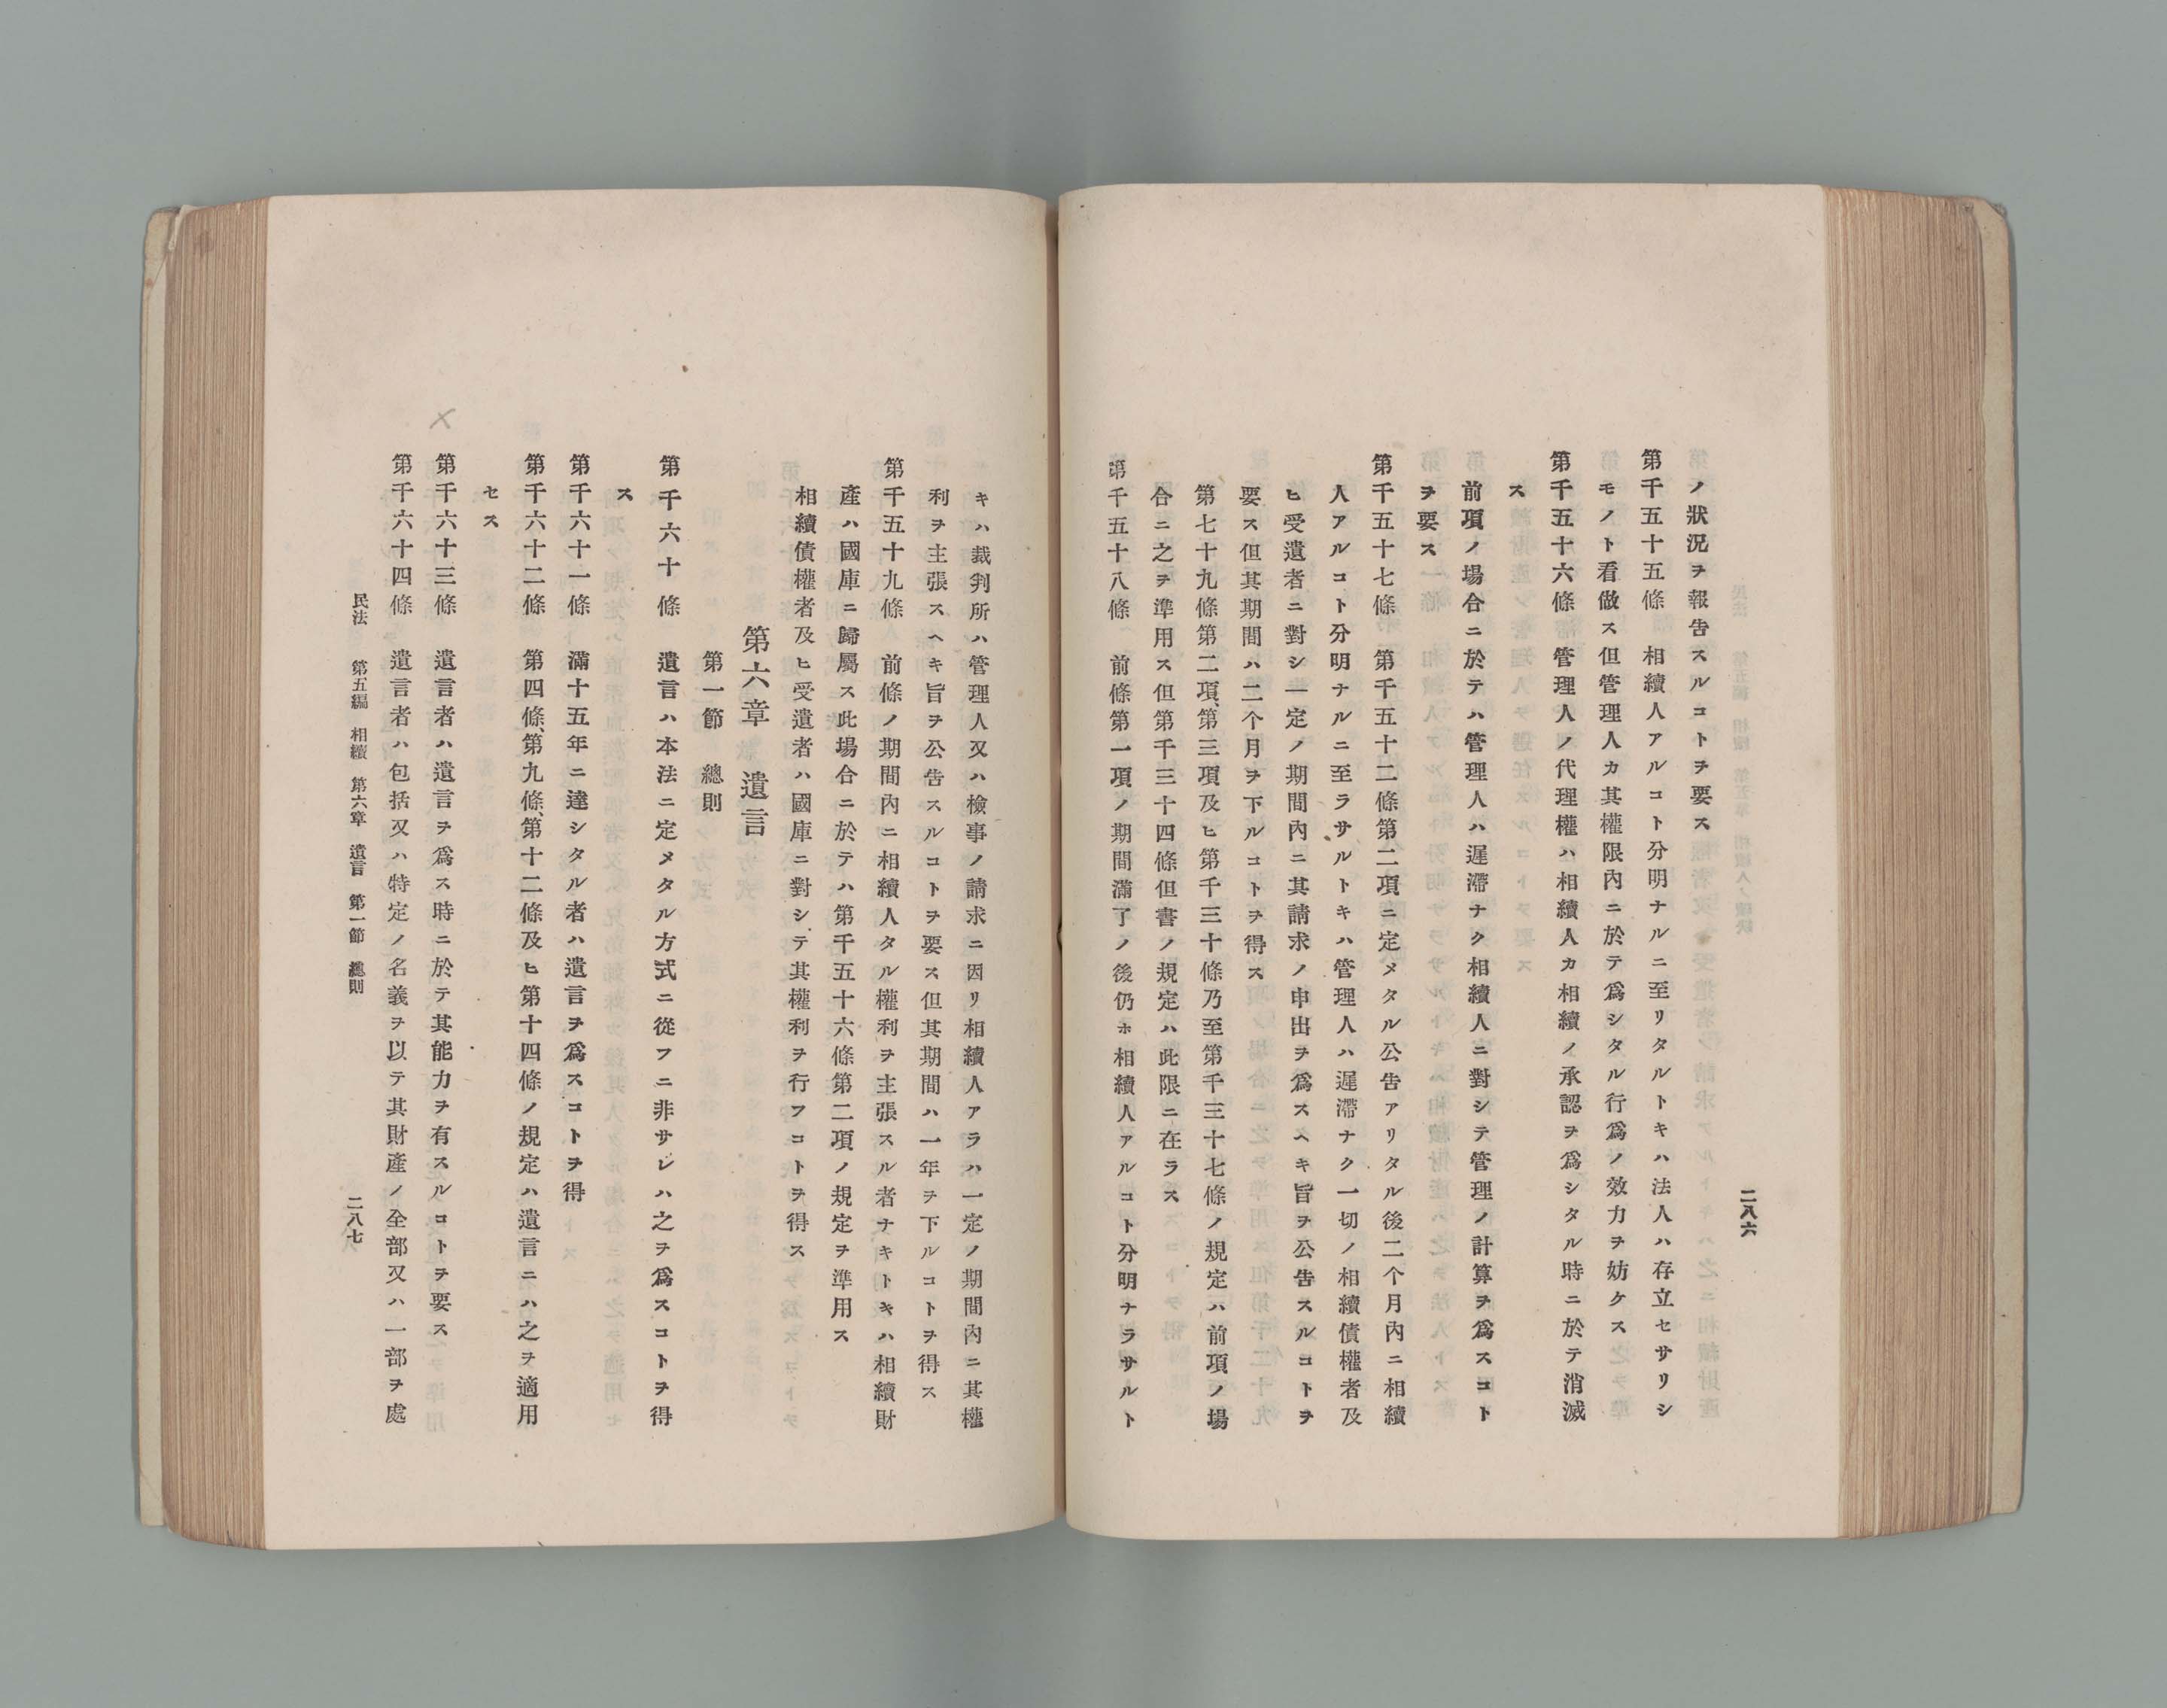 ノ狀況ヲ報告スルコトヲ要ス
第千五十五條　相續人アルコト分明ナルニ至リタルトキハ法人ハ存立セサリシ
モノト看做ス但管理人カ其權限內ニ於テ爲シタル行爲ノ效力ヲ妨ケス
第千五十六條　管理人ノ代理權ハ相續人カ相續ノ承認ヲ爲シタル時ニ於テ消滅
ス
前項ノ場合ニ於テハ管理人ハ遲滯ナク相續人ニ對シテ管理ノ計算ヲ爲スコト
ヲ要ス
第千五十七條　第千五十二條第二項ニ定メタル公告アリタル後二个月內ニ相續
人アルコト分明ナルニ至ラサルトキハ管理人ハ遲滯ナク一切ノ相續債權者及
ヒ受遺者ニ對シ一定ノ期間內ニ其請求ノ申出ヲ爲スヘキ旨ヲ公告スルコトヲ
要ス但其期間ハ二个月ヲ下ルコトヲ得ス
第七十九條第二項、第三項及ヒ第千三十條乃至第千三十七條ノ規定ハ前項ノ場
合ニ之ヲ準用ス但第千三十四條但書ノ規定ハ此限ニ在ラス
第千五十八條　前條第一項ノ期間滿了ノ後仍ホ相續人アルコト分明ナラサルト
二八六
キハ裁判所ハ管理人又ハ檢事ノ請求ニ因リ相續人アラハ一定ノ期間內ニ其權
利ヲ主張スヘキ旨ヲ公告スルコトヲ要ス但其期間ハ一年ヲ下ルコトヲ得ス
第千五十九條　前條ノ期間內ニ相續人タル權利ヲ主張スル者ナキトキハ相續財
產ハ國庫ニ歸屬ス此場合ニ於テハ第千五十六條第二項ノ規定ヲ準用ス
相續債權者及ヒ受遺者ハ國庫ニ對シテ其權利ヲ行フコトヲ得ス
第六章　遺言
第一節　總則
第千六十條　遺言ハ本法ニ定メタル方式ニ從フニ非サレハ之ヲ爲スコトヲ得
ス
第千六十一條　滿十五年ニ達シタル者ハ遺言ヲ爲スコトヲ得
第千六十二條　第四條、第九條、第十二條及ヒ第十四條ノ規定ハ遺言ニハ之ヲ適用
セス
第千六十三條　遺言者ハ遺言ヲ爲ス時ニ於テ其能力ヲ有スルコトヲ要ス
第千六十四條　遺言者ハ包括又ハ特定ノ名義ヲ以テ其財產ノ全部又ハ一部ヲ處
民法　第五編　相續　第六章　遺言　第一節　總則
二八七